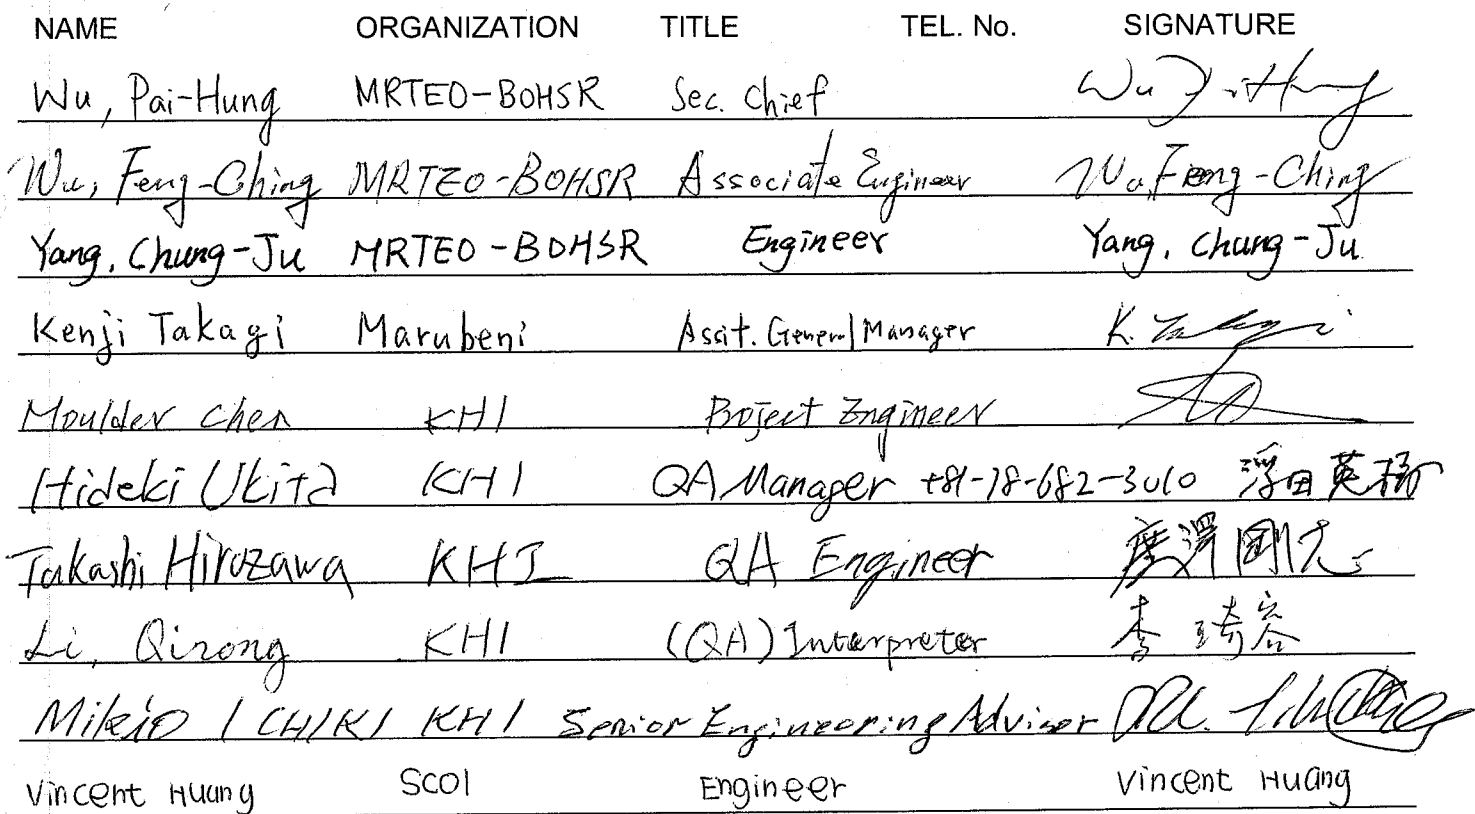 NAME ORGANIZATION TITLE TEL. No. SIGNATURE
Wu, Pai-Hung MRTEO-BOHSR Sec. Chief Wu
Wu, Feng-Ching MRTEO-BOHSR Associate Engineer Wu, Feng-Ching
Yang, Chung-Ju MRTEO-BOHSR Engineer Yang, Chung-Ju
Kenji Takagi Marubeni Assit. General Manager K.
Moulder Chen KHI Project Engineer
Hideki Ukita KHI QA Manager +81-78-682-3010 浮田英樹
Takashi Hirozawa KHI QA Engineer 廣澤剛
Li, Qirong KHI (QA) Interpreter 李琦容
Mikio ICHIKI KHI Senior Engineering Advisor
Vincent Huang SCOI Engineer Vincent Huang